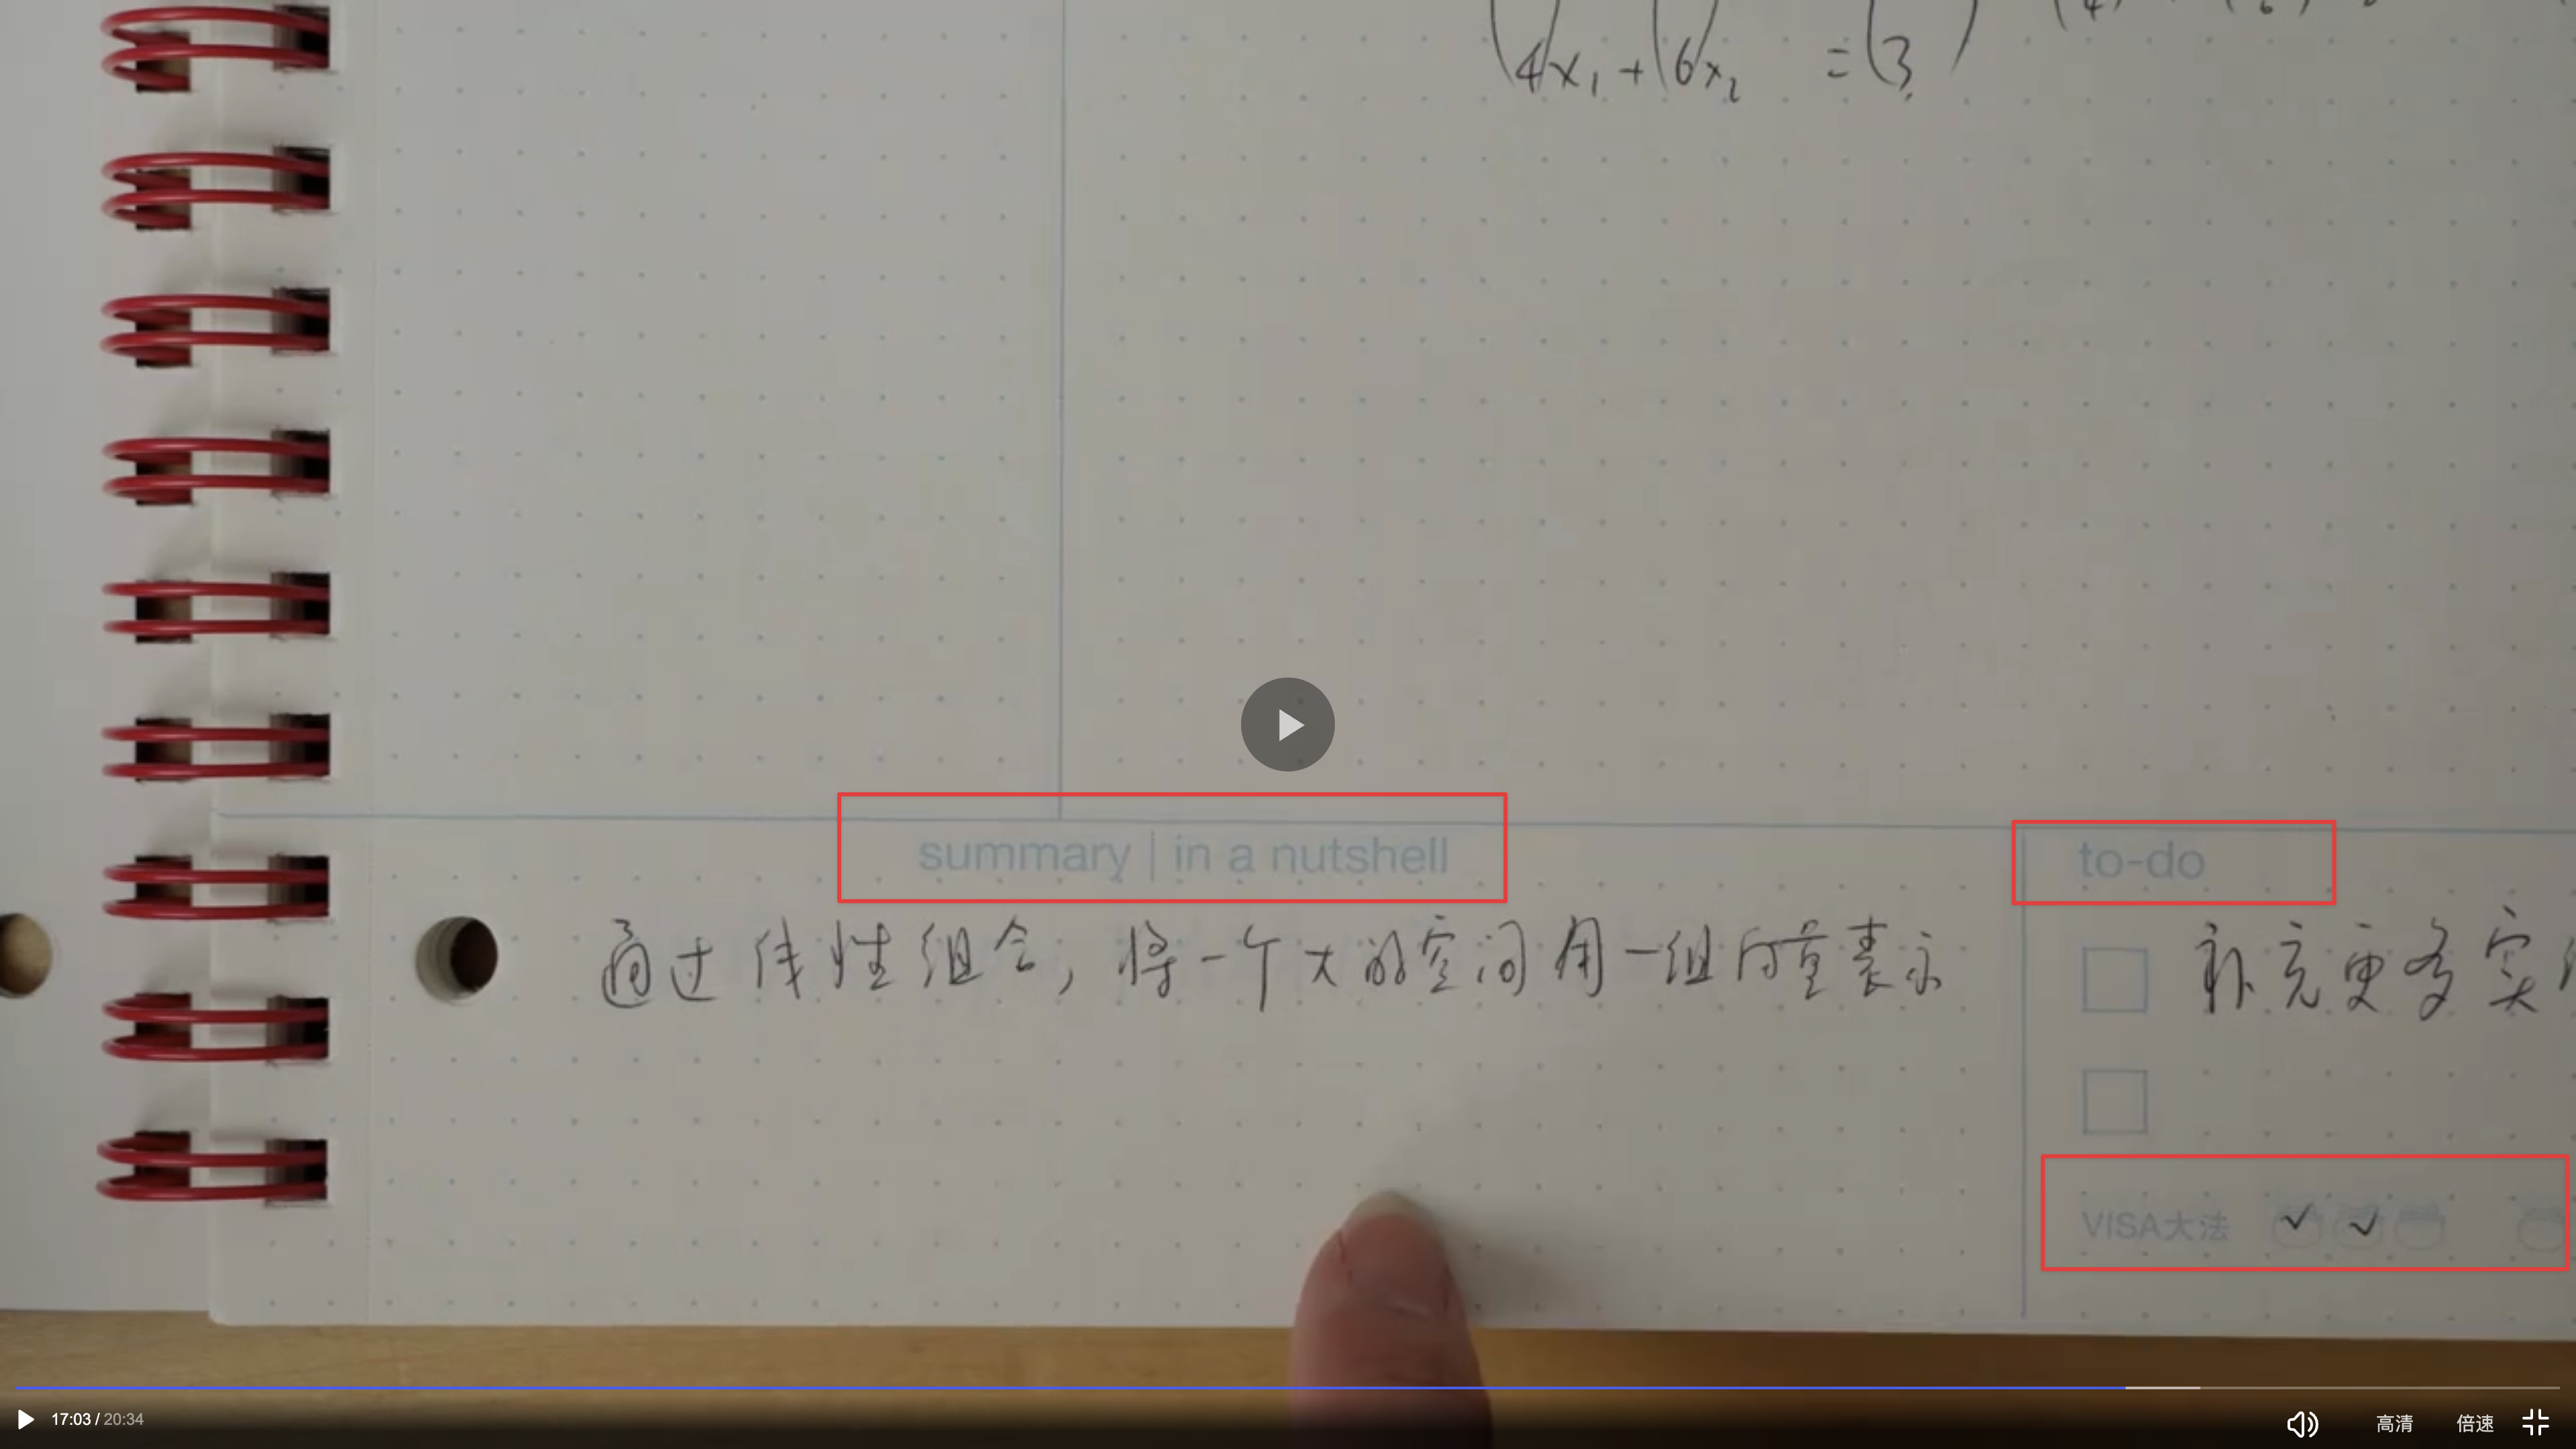 4x₁ + 6x₂ = 3
summary | in a nutshell
to-do
通过线性组合，将一个大的空间用一组向量表示
补充更多实
VISA大法
17:03 / 20:34
高清
倍速